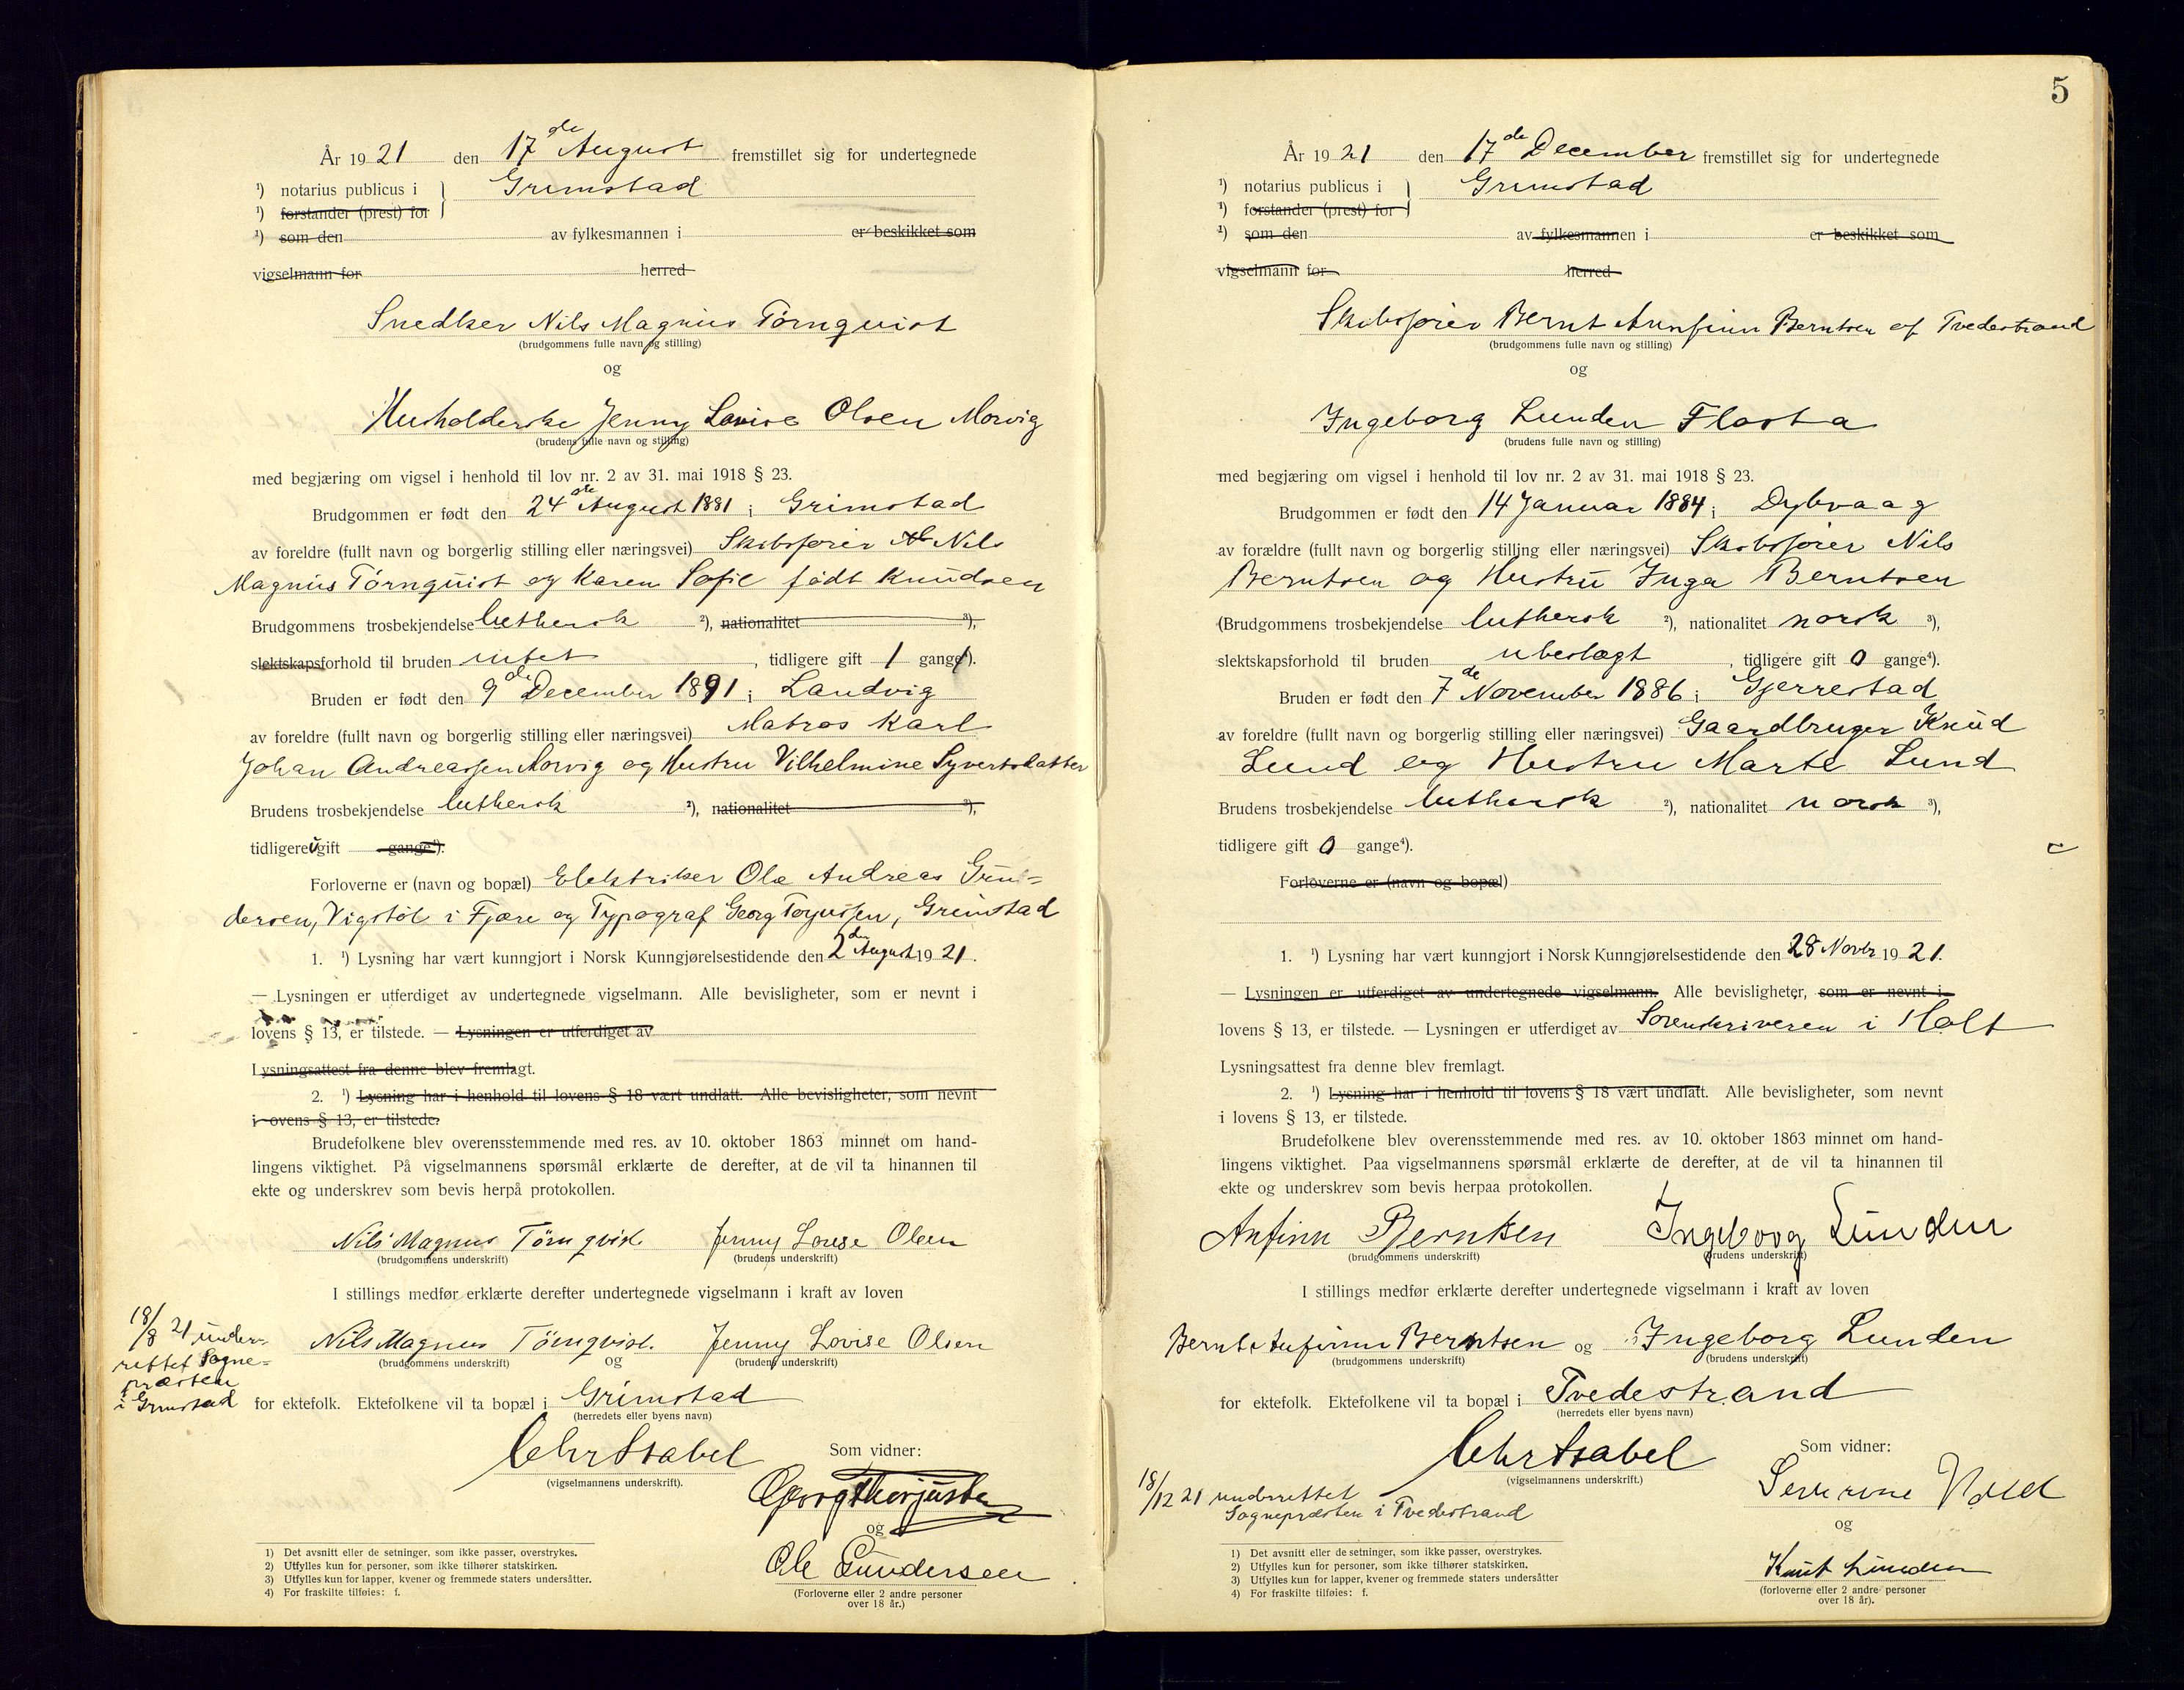 År 1921 den 17de August fremstillet sig for undertegnede
¹) notarius publicus i } Grimstad
¹) forstander (prest) for
¹) som den av fylkesmannen i er beskikket som
vigselmann for herred
Snedker Nils Magnus Törnquist
(brudgommens fulle navn og stilling)
og
Husholderske Jenny Lovise Olsen Morvig
(brudens fulle navn og stilling)
med begjæring om vigsel i henhold til lov nr. 2 av 31. mai 1918 § 23.
Brudgommen er født den 24de August 1881 i Grimstad
av foreldre (fullt navn og borgerlig stilling eller næringsvei) Skibsfører Nils
Magnus Törnquist og Karen Sofie født Knudsen
Brudgommens trosbekjendelse luthersk ²), nationalitet ³),
slektskapsforhold til bruden intet, tidligere gift 1 gange⁴).
Bruden er født den 9de December 1891 i Landvig
av foreldre (fullt navn og borgerlig stilling eller næringsvei) Matros Karl
Johan Andreassen Morvig og Hustru Vilhelmine Syvertsdatter
Brudens trosbekjendelse luthersk ²), nationalitet ³),
tidligere ugift gange⁴).
Forloverne er (navn og bopæl) Elektriker Ole Andreas Gun=
dersen, Vigstøl i Fjære og Typograf Georg Torjussen, Grimstad
1. ¹) Lysning har vært kunngjort i Norsk Kunngjørelsestidende den 2den August 1921.
— Lysningen er utferdiget av undertegnede vigselmann. Alle bevisligheter, som er nevnt i
lovens § 13, er tilstede. — Lysningen er utferdiget av
Lysningsattest fra denne blev fremlagt.
2. ¹) Lysning har i henhold til lovens § 18 vært undlatt. Alle bevisligheter, som nevnt
i ovens § 13, er tilstede.
Brudefolkene blev overensstemmende med res. av 10. oktober 1863 minnet om hand-
lingens viktighet. På vigselmannens spørsmål erklærte de derefter, at de vil ta hinannen til
ekte og underskrev som bevis herpå protokollen.
Nils Magnus Törnqvist. Jenny Lovise Olsen
(brudgommens underskrift) (brudens underskrift)
I stillings medfør erklærte derefter undertegnede vigselmann i kraft av loven
Nils Magnus Törnqvist. Jenny Lovise Olsen
(brudgommens underskrift) og (brudens underskrift)
18/8 21 under-
rettet Sogne=
præsten
i Grimstad
for ektefolk. Ektefolkene vil ta bopæl i Grimstad
(herredets eller byens navn)
Chr Isabel
(vigselmannens underskrift).
Som vidner:
Georg Thorjussen
og
Ole Gundersen
(Forloverne eller 2 andre personer
over 18 år.)
1) Det avsnitt eller de setninger, som ikke passer, overstrykes.
2) Utfylles kun for personer, som ikke tilhører statskirken.
3) Utfylles kun for lapper, kvener og fremmede staters undersåtter.
4) For fraskilte tilføies: f.
5
År 1921 den 17de December fremstillet sig for undertegnede
¹) notarius publicus i } Grimstad
¹) forstander (prest) for
¹) som den av fylkesmannen i er beskikket som
vigselmann for herred
Skibsfører Bernt Annfinn Berntsen af Tvedestrand
(brudgommens fulle navn og stilling)
og
Ingeborg Lunden Flosta
(brudens fulle navn og stilling)
med begjæring om vigsel i henhold til lov nr. 2 av 31. mai 1918 § 23.
Brudgommen er født den 14 Januar 1884 i Dybvaag
av forældre (fullt navn og borgerlig stilling eller næringsvei) Skibsfører Nils
Berntsen og Hustru Inga Berntsen
(Brudgommens trosbekjendelse luthersk ²), nationalitet norsk ³),
slektskapsforhold til bruden ubeslægt, tidligere gift 0 gange⁴).
Bruden er født den 7de November 1886 i Gjerrestad
av foreldre (fullt navn og borgerlig stilling eller næringsvei) Gaardbruger Knud
Lund og Hustru Marte Lund
Brudens trosbekjendelse luthersk ²), nationalitet norsk ³),
tidligere gift 0 gange⁴).
Forloverne er (navn og bopæl)
1. ¹) Lysning har vært kunngjort i Norsk Kunngjørelsestidende den 28 Novbr 1921.
— Lysningen er utferdiget av undertegnede vigselmann. Alle bevisligheter, som er nevnt i
lovens § 13, er tilstede. — Lysningen er utferdiget av Sorenskriveren i Holt
Lysningsattest fra denne blev fremlagt.
2. ¹) Lysning har i henhold til lovens § 18 vært undlatt. Alle bevisligheter, som nevnt
i lovens § 13, er tilstede.
Brudefolkene blev overensstemmende med res. av 10. oktober 1863 minnet om hand-
lingens viktighet. Paa vigselmannens spørsmål erklærte de derefter, at de vil ta hinannen til
ekte og underskrev som bevis herpaa protokollen.
Anfinn Berntsen Ingeborg Lunden
(brudgommens underskrift) (brudens underskrift)
I stillings medfør erklærte derefter undertegnede vigselmann i kraft av loven
Bernt Anfinn Berntsen og Ingeborg Lunden
(brudgommens underskrift) (brudens underskrift)
for ektefolk. Ektefolkene vil ta bopæl i Tvedestrand
(herredets eller byens navn)
Chr Isabel
(vigselmannens underskrift.)
18/12 21 underrettet
Sognepræsten i Tvedestrand
Som vidner:
Severine
og
Knut Lunden
(forloverne eller 2 andre personer
over 18 år).
1) Det avsnitt eller de setninger, som ikke passer, overstrykes.
2) Utfylles kun for personer, som ikke tilhører statskirken.
3) Utfylles kun for lapper, kvener og fremmede staters undersåtter
4) For fraskilte tilføies: f.